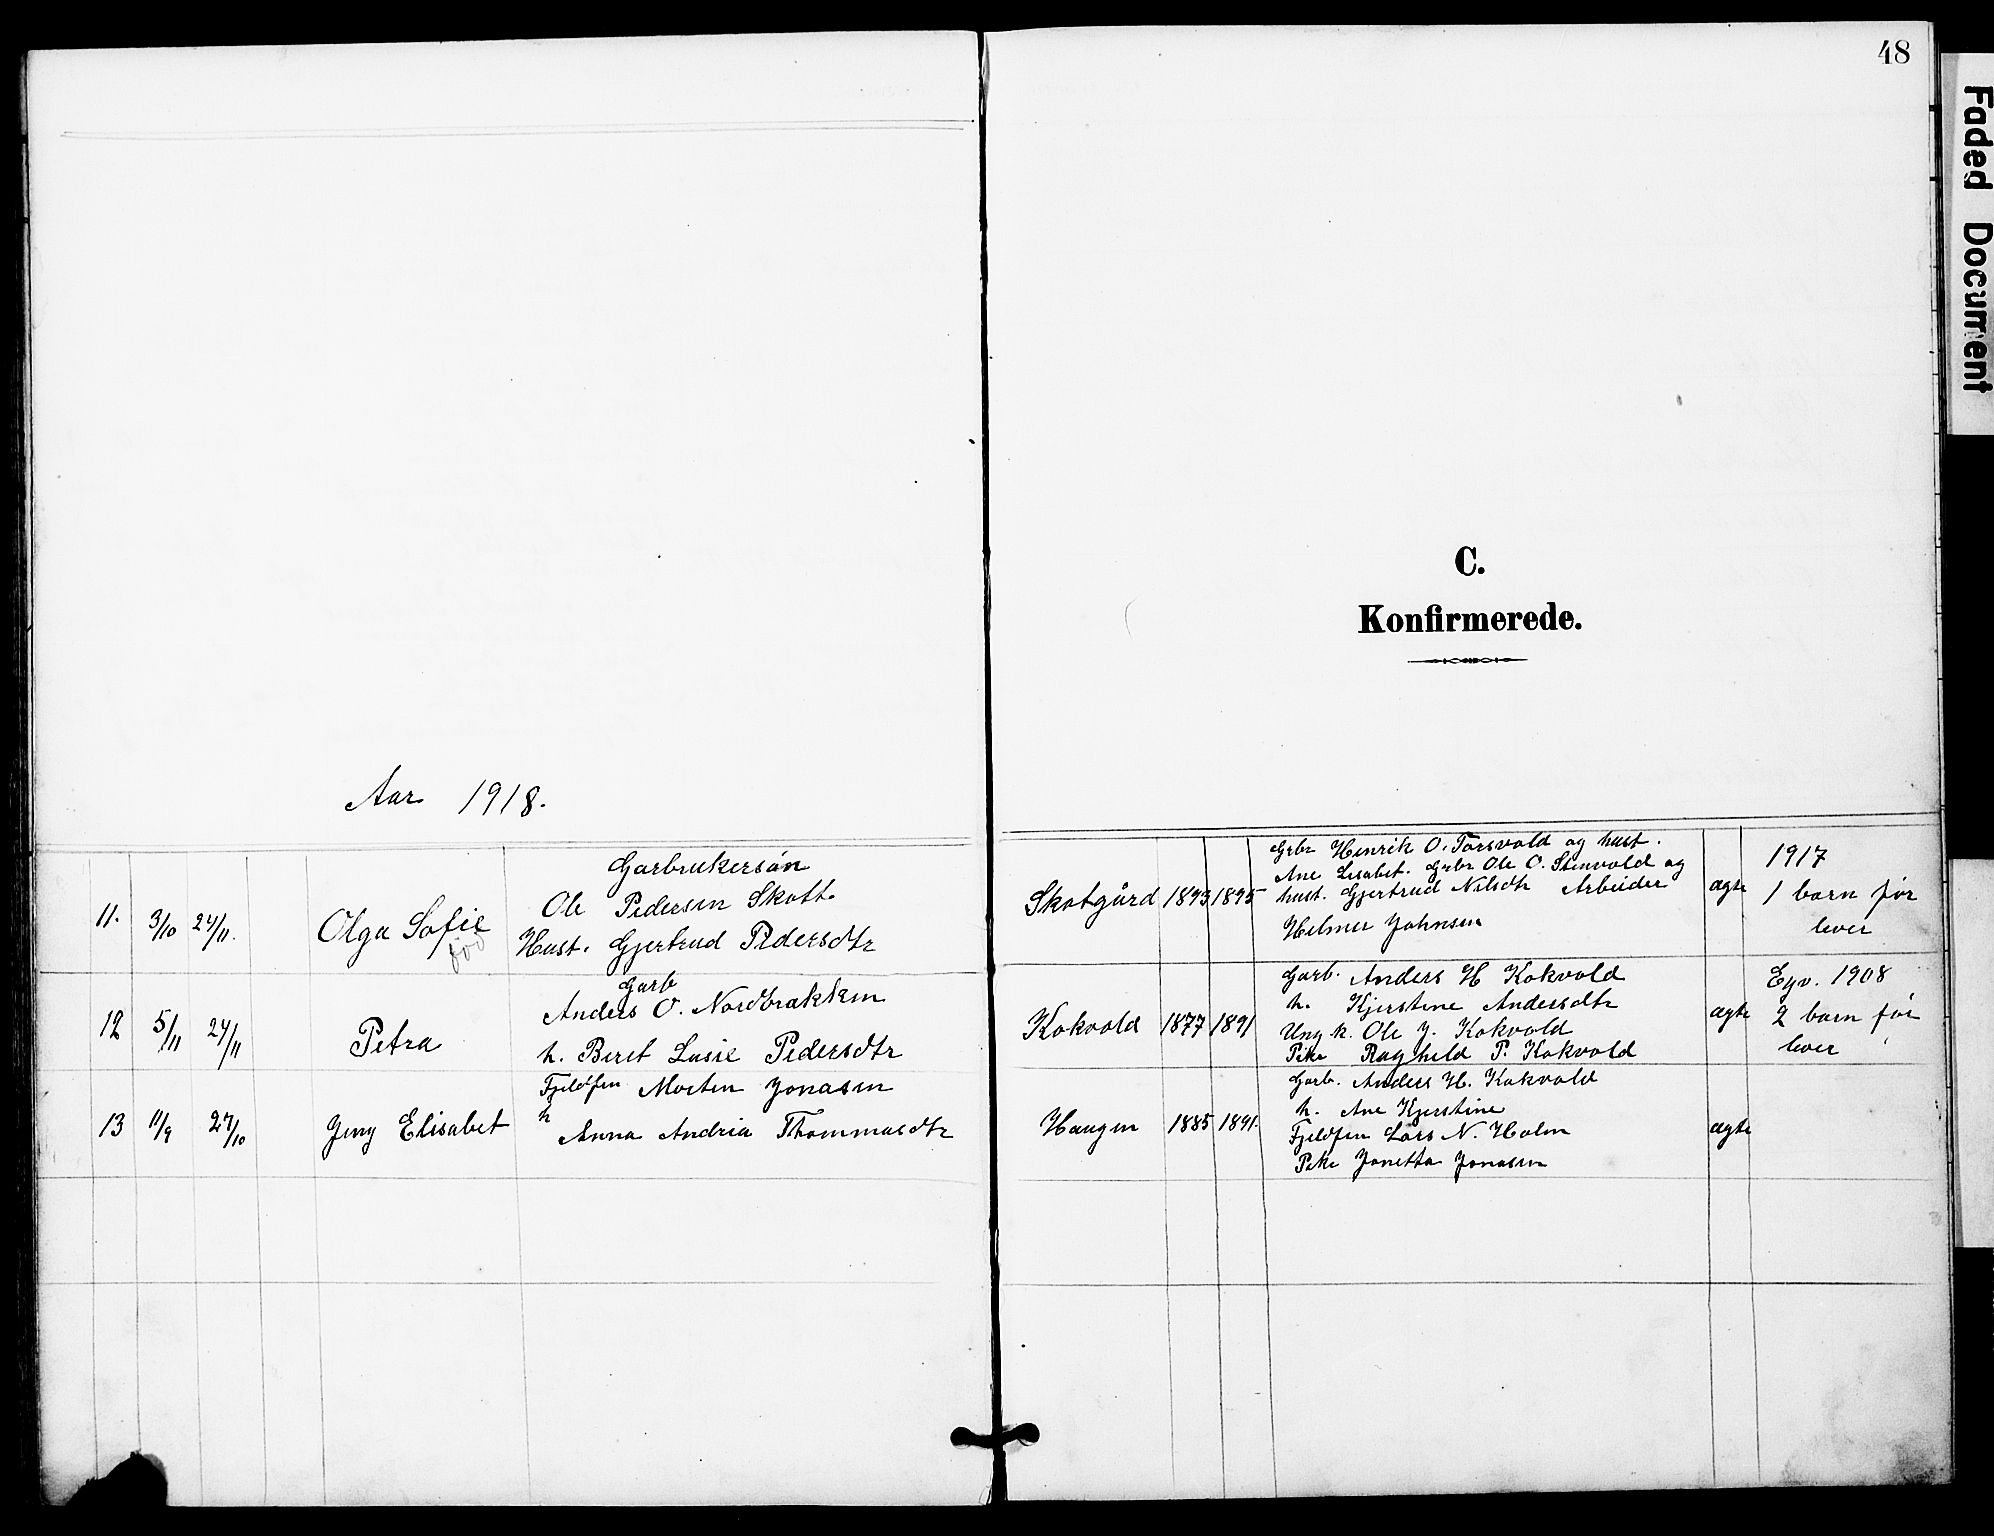 48
Faded Document
C.
Konfirmerede.
Aar 1918.
11. 3/10 24/11. Olga Sofie
jød
Garbrukersøn
Ole Pedersen Skott
Hust. Gjertrud Pedersdtr
Skotgård 1893 1895
Grbr Henrik O. Torsvold og hust.
Ane Lisabet. Grbr Ole O. Stenvold og
hust. Gjertrud Nilsdtr Arbeider
Helmer Johnsen
ægte
1917
1 barn før
lever
12 5/11 24/11 Petra
Garb
Anders O. Nordbrækken
h. Beret Lusie Pedersdtr
Kokvold 1877 1891
Garb. Anders H Kokvold
h. Kjerstine Andersdtr
Ung k. Ole J. Kokvold
Pike Raghild P. Kokvold
ægte
Egv. 1908
2 barn før
lever
13 11/9 27/10 Jeny Elisabet
Fjeldfin Morten Jonasen
h Anna Andria Thommasdtr
Haugen 1885 1891.
Garb. Anders H. Kokvold
h. Ane Kjerstine
Fjeldfin Lars N. Holm
Pike Jonetta Jonasen
ægte